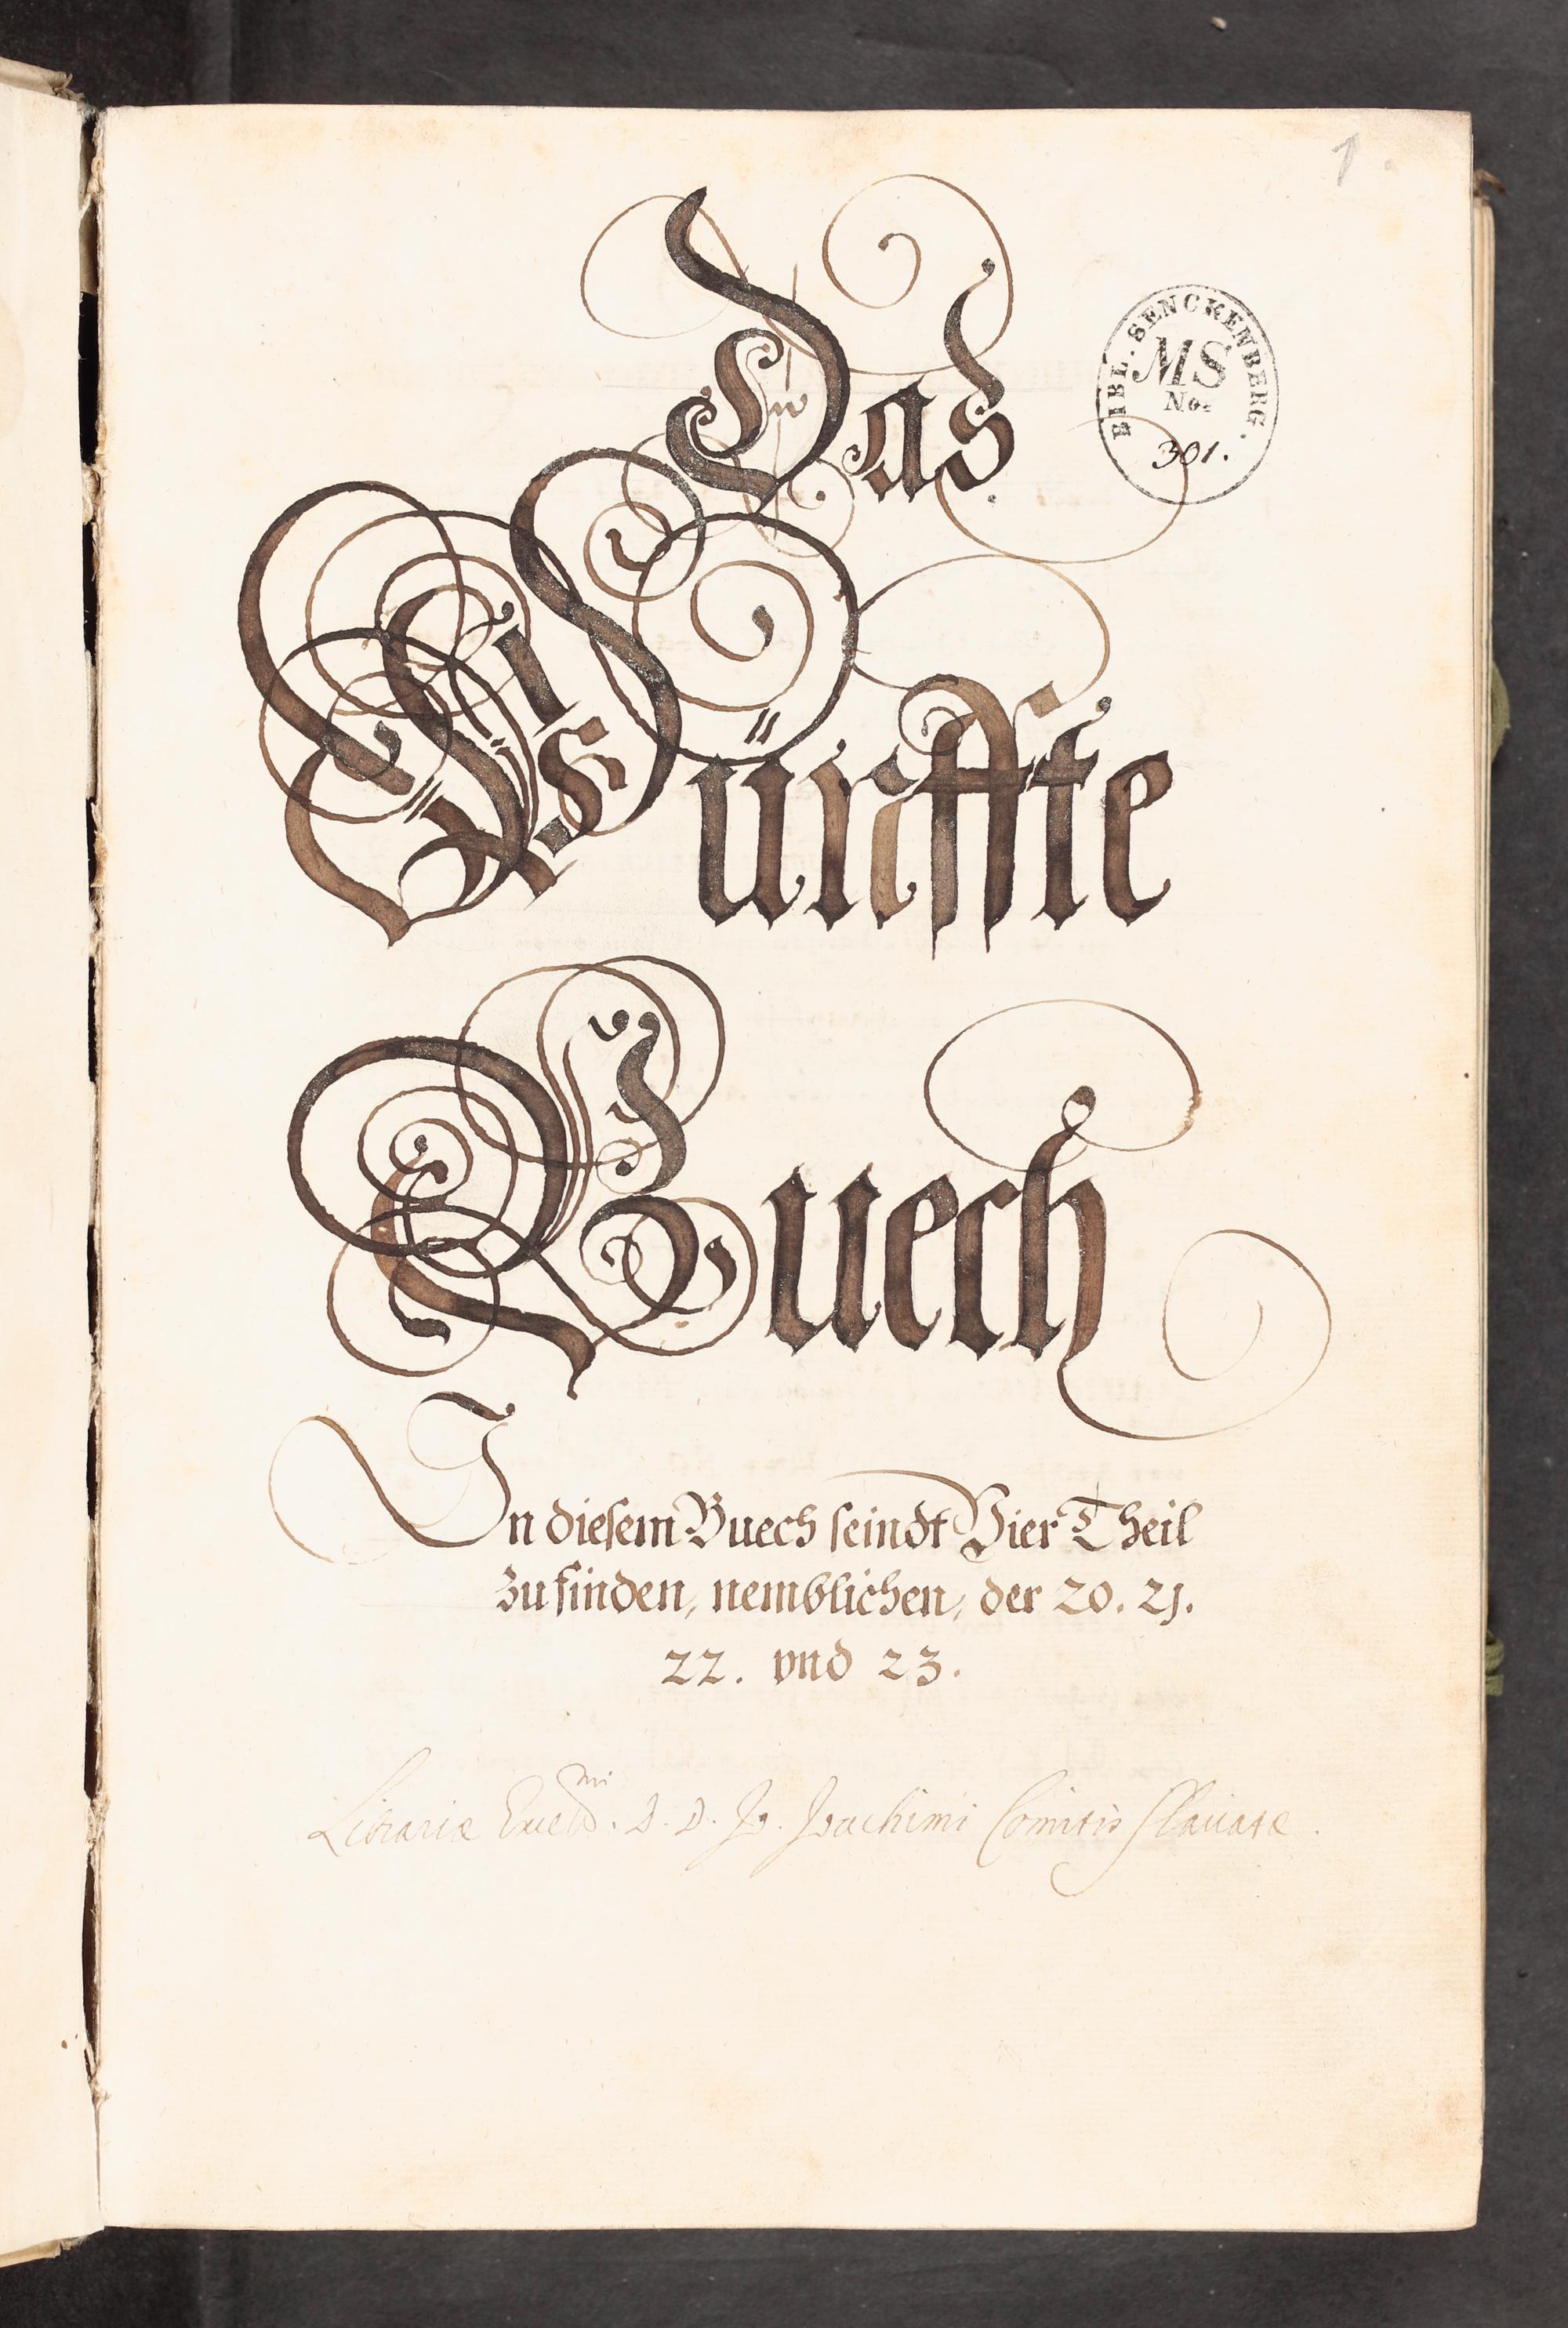 1.
BIBL. SENCKENBERG.
MS
No.
301.
Das
Fünffte
Buech
In diesem Buech seindt Vier Theil
zu finden, nemblichen, der 20. 21.
22. vnd 23.
Librariæ D. D. Jo. Joachimi Comitis Slauatæ.